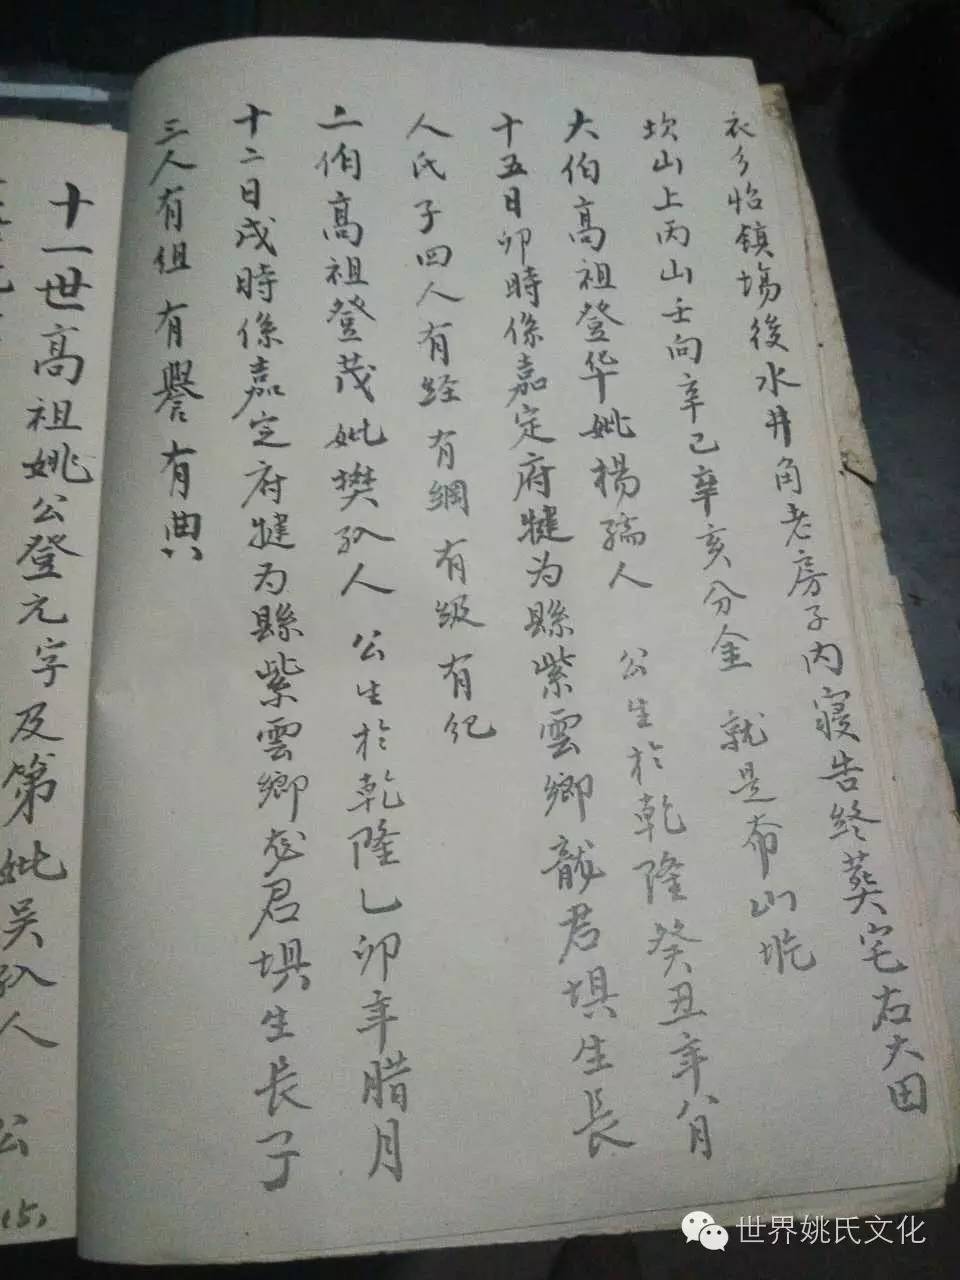 衣乡怡鎮場後水井角老房子内寝告終葬宅右大田
坎山上丙山壬向辛巳辛亥分金 就是布山坨
大伯高祖登华妣楊孺人 公生於乾隆癸丑年八月
十五日卯時係嘉定府犍为縣紫雲鄉龍君埧生長
人氏子四人有经有綱有级有纪
二伯高祖登茂妣樊孺人 公生於乾隆乙卯年腊月
十二日戌時係嘉定府犍为縣紫雲鄉龙君埧生長子
三人有组有譽有典
十一世高祖姚公登元字及第妣吴孺人 公
(5)
世界姚氏文化